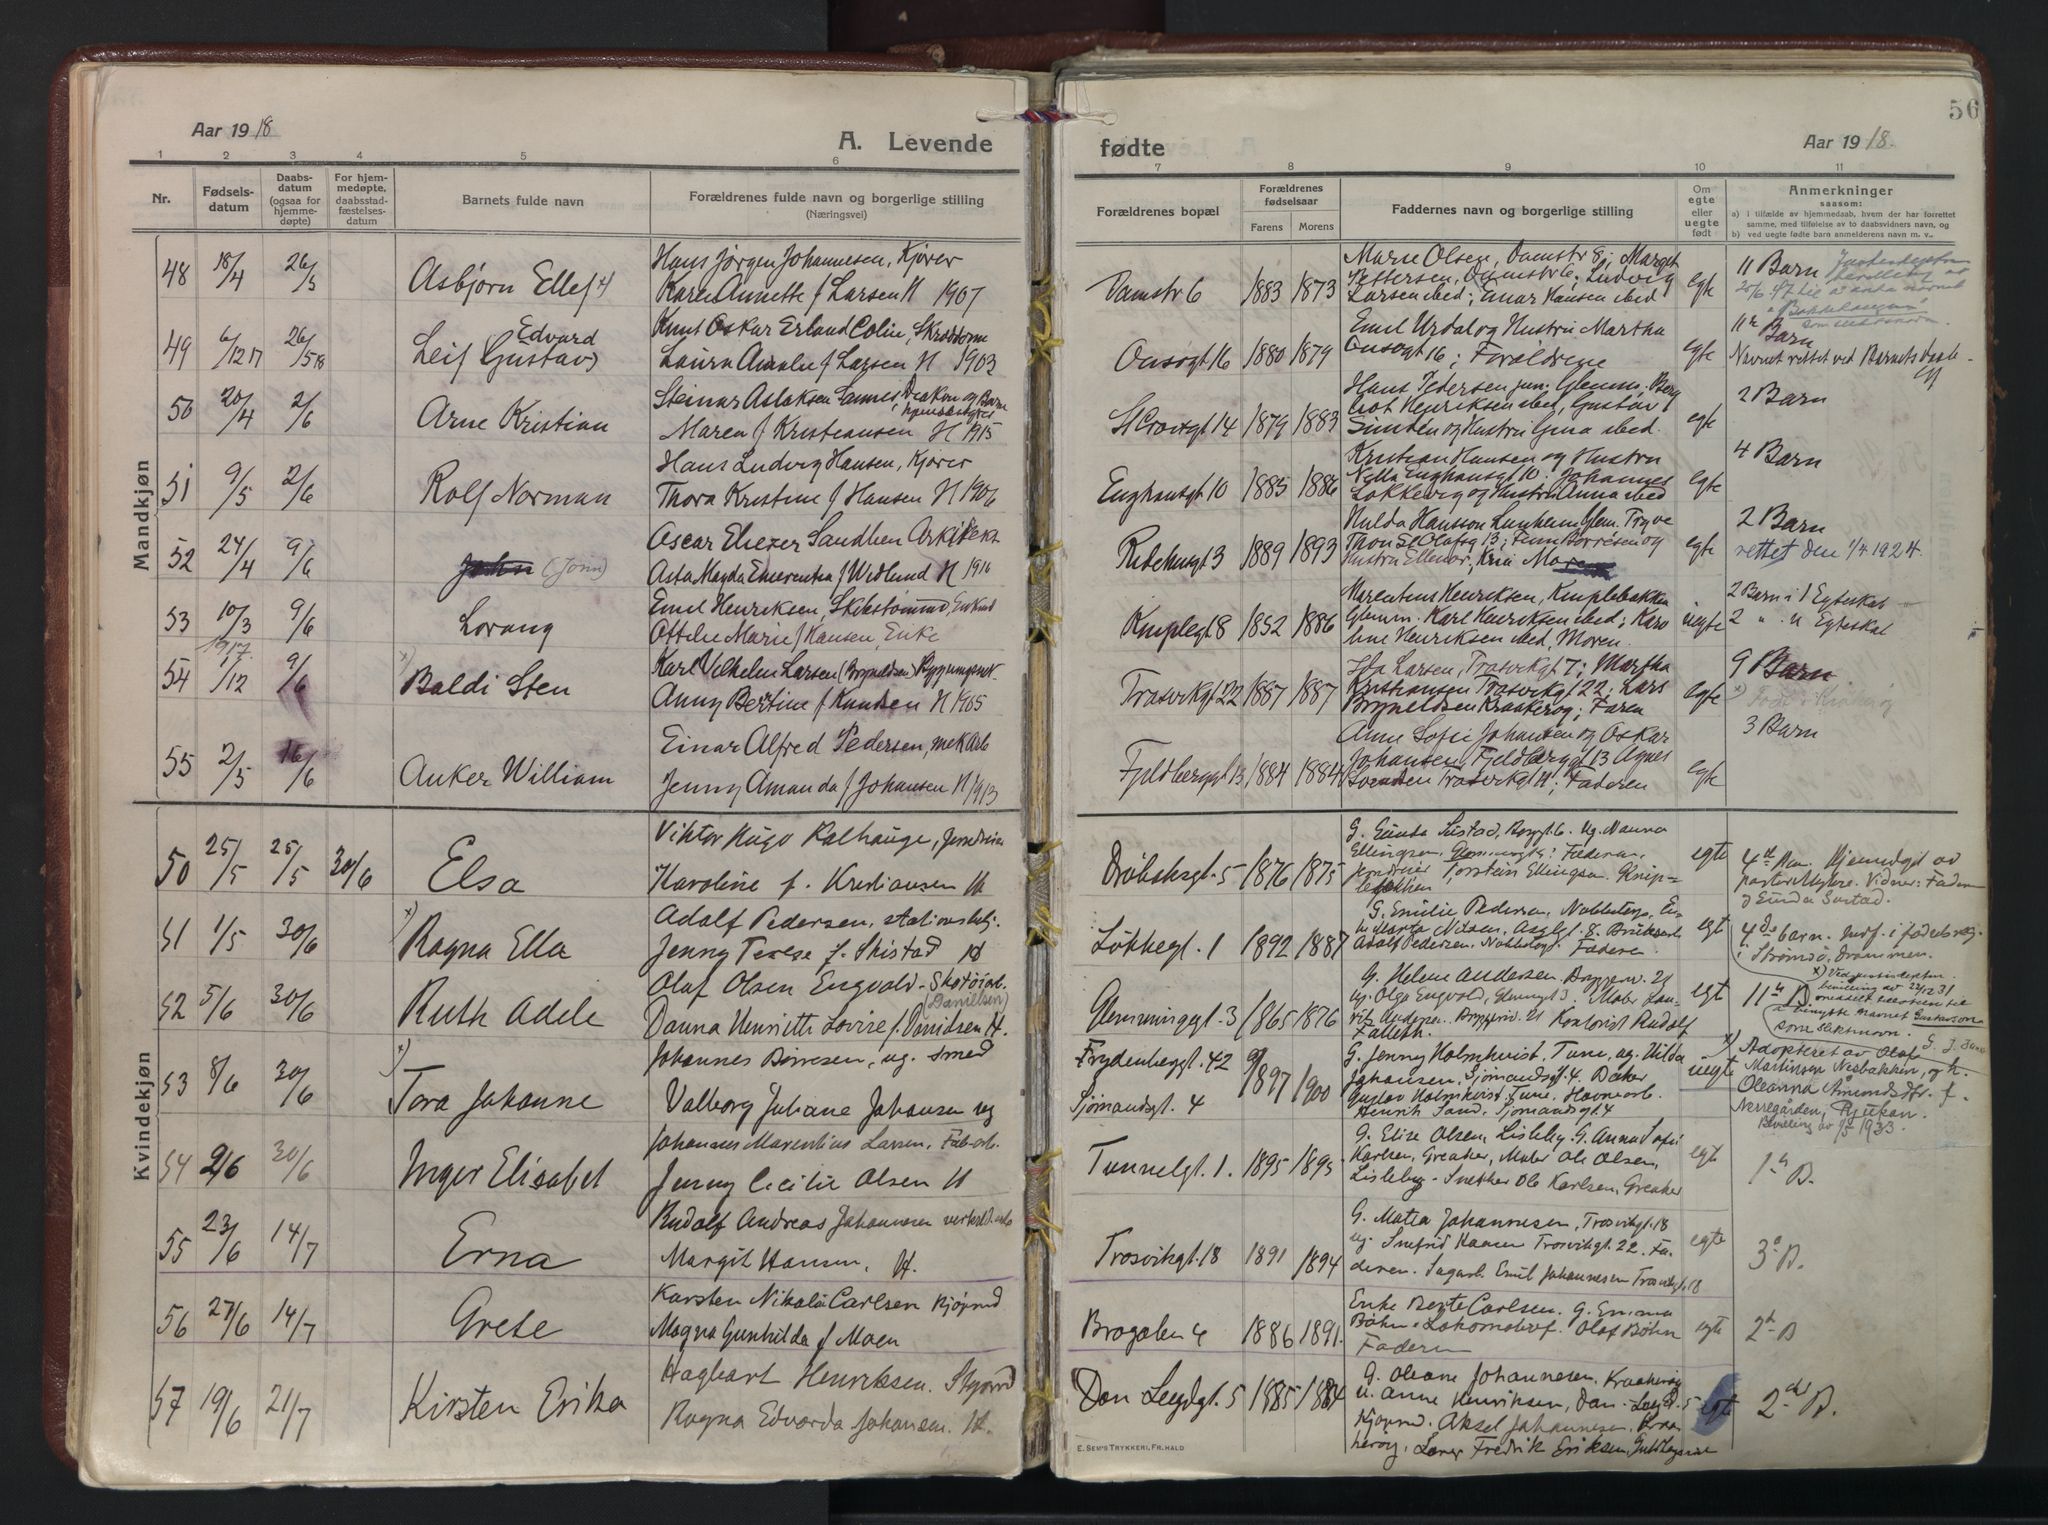 56
Aar 1918
A. Levende
fødte
Aar 1918.
1 2 3 4 5 6
7 8 9 10 11
Nr.
Fødsels-
datum
Daabs-
datum
(ogsaa for
hjemme-
døpte)
For hjem-
medøpte,
daabsstad-
fæstelses-
datum
Barnets fulde navn
Forældrenes fulde navn og borgerlige stilling
(Næringsvei)
Forældrenes bopæl
Forældrenes
fødselsaar
Farens Morens
Faddernes navn og borgerlige stilling
Om
egte
eller
uegte
født
Anmerkninger
saasom:
a) i tilfælde av hjemmedaab, hvem der har forrettet
samme, med tilføielse av to daabsvidners navn, og
b) ved uegte fødte barn anmelderens navn m. v.
Mandkjøn
48 18/4 26/5 Asbjørn Ellef
Hans Jørgen Johannesen, Kjører
Karen Annette f Larsen H 1907
Damstr 6 1883 1873
Marie Olsen, Damstr 8; Margit
Pettersen, Damstr 6; Ludvig
Larsen ibed; Einar Hansen ibed
egte
11 Barn
49 6/12 17 26/5 18 Leif Edvard Gustav
Knut Oskar Erland Colin, Skrædderm
Laura Amalie f Larsen H 1903
Onsøgt 16 1880 1879
Emil Urdal og Hustru Martha
Onsøgt 16; Forældrene
egte
11te Barn
Navnet rettet ved Barnets daab
50 20/4 2/6 Arne Kristian
Steinar Aslaksen Sannes, Diakon og Barne
hjemsbestyrer
Maren f Kristiansen H 1915
St Crosgt 14 1879 1883
Hans Pedersen jun. Glemm. Berg
liot Henriksen ibed, Gustav
Sunden og Hustru Gina ibed.
egte
2 Barn
51 9/5 2/6 Rolf Norman
Hans Ludvig Hansen, Kjører
Thora Kristine f Hansen H 1906
Enghausgt 10 1885 1886
Kristian Hansen og Hustru
Nilla Enghausgt 10 Johannes
Løkkevig og Hustru Anna ibed
egte
4 Barn
52 24/4 9/6 John (Jonn)
Oscar Eliezer Sandben Arkitekt
Asta Magda Emerentia f Wedlund H 1916
Ridehusgt 3 1889 1893
Thon St Olafsg 13; Finn Børresen og
Hustru Ellenor, Kria
egte
2 Barn
rettet den 1/4 1924.
53 10/3 9/6 Lorang
Emil Henriksen, Skibstømmd, Enkemd
Ottilie Marie f Hansen, Enke
Kniplegt 8 1852 1886
Marentius Henriksen, Kniplebakken
Glemm. Karl Henriksen ibed; Karo
line Henriksen ibed, Moren
uegte
2 Barn i 1 Egteskab
2 " u Egteskab
54 1917 1/12 9/6 x) Baldi Sten
Karl Vilhelm Larsen (Brynildsen) Bygningssnk
Anny Bertine f Knudsen H 1905
Trosvikgt 22 1887 1887
Ida Larsen, Trosvikgt 7; Martha
Kristiansen Trosvikgt 22; Lars
Brynildsen Kraakerøy; Faren
egte
9 Barn
x) Født i Kraakerøy
55 2/5 16/6 Anker William
Einar Alfred Pedersen, mek Arb
Jenny Amanda f Johansen H 1913
Fjeldberggt 13 1884 1884
Anne Sofie Johansen og Oskar
Johansen, Fjeldberggt 13 Agnes
Svendsen Trosvikgt 11; Faderen
egte
3 Barn
Kvindekjøn
50 25/5 25/5 30/6 Elsa
Viktor Hugo Kalhauge,
Karoline f. Kristiansen H
Drøbaksgt. 5 1876 1875
G. Eunda Sustad, Bryggt. 6. Ug. Nanna
Ellingsen, Faderen,
Torstein Ellingsen. Knip-
lebakken
egte
4de Barn. Hjemmedøpt av
pastor Myhre. Vidner: Faderen
og Eunda Sustad.
51 1/5 30/6 x) Ragna Ella
Adolf Pedersen, stationsbetj.
Jenny Terese f. Skistad H
Løkkegt. 1 1892 1887
G. Emilie Pedersen, Nabbetorp, En-
Marta Nilsen, Asylgt. 8. Bruksarb.
Adolf Pedersen, Nabbetorp. Faderen
egt
4de barn. Indf. i fødselsreg.
i Strømsø, Drammen.
52 5/6 30/6 Ruth Adele
Olaf Olsen Engvold - Skotøiarb.
(Danielsen)
Danna Henriette Lovise f. Davidsen H.
Glemminggt. 3 1865 1876
G. Helene Andersen Bryggeriv. 21
ug. Olga Engvold, Glemmgt 3. Maler Lau-
ritz Andersen. Bryggeriv. 21 Kontorist Rudolf
egt
11te B.
x) Ved justisdeptm.
bevilling av 22/12 31
a benytte navnet Gustavson
som slektsnavn.
53 8/6 30/6 x) Tora Johanne
Johannes Børresen, ug. smed
Valborg Juliane Johansen ug
Frydenbergt. 42
Sjømandsgt. 4
1897 1900
G. Jenny Holmkvist, Tune, ug. Hilda
Johansen, Sjømandsgt. 4. Baker
Gustav Holmkvist, Tune, Havnearb.
Henrik Sand, Sjømandsgt. 4
uegte
x) Adopteret av Olaf
Martinsen Nesbakken, og h.
Oleanna Amundsdtr. f.
Nerregården, Rjukan.
Bevilling av 1/5 1933.
54 2/6 30/6 Inger Elisabet
Johannes Marentius Larsen, Fab.arb.
Jenny Cecilie Olsen H
Tunnelgt. 1. 1895 1895
G. Elise Olsen, Lisleby. G. Anna Sofie
Karlsen, Greaker, Maler Ole Olsen,
Lisleby - Snekker Ole Karlsen, Greaker
egt
1ste B.
55 23/6 14/7 Erna
Rudolf Andreas Johannesen verkst.arb
Margit Hansen, H.
Trosvikgt. 18 1891 1894
G. Matea Johannesen, Trosvikgt. 18
ug. Snefrid Hansen Trosvikgt. 22. Fa-
deren. Sagarb. Emil Johannesen Trosvikgt. 18
egte
3de B.
56 27/6 14/7 Grete
Karsten Nikolai Carlsen Kjøpmd
Magna Gunhilda f Moen
Brogaten 4 1886 1891.
Enke Berte Carlsen. G. Emma
Bøhn. Lokomotivf. Olaf Bøhn
Faderen
egte
2det B
57 19/6 21/7 Kirsten Erika
Hagbart Henriksen. Kjøpmd
Ragna Edvarda Johansen. H.
Dan Leegdgt. 5 1885 1884
G. Oleane Johannesen, Kraakerøy
u. Anne Henriksen, Dan. Leegd. 5
Kjøpmd. Aksel Johannesen, Kraa-
kerøy, Fredrik Eriksen,
egt
2det B.
E. SEM'S TRYKKERI, FR.HALD